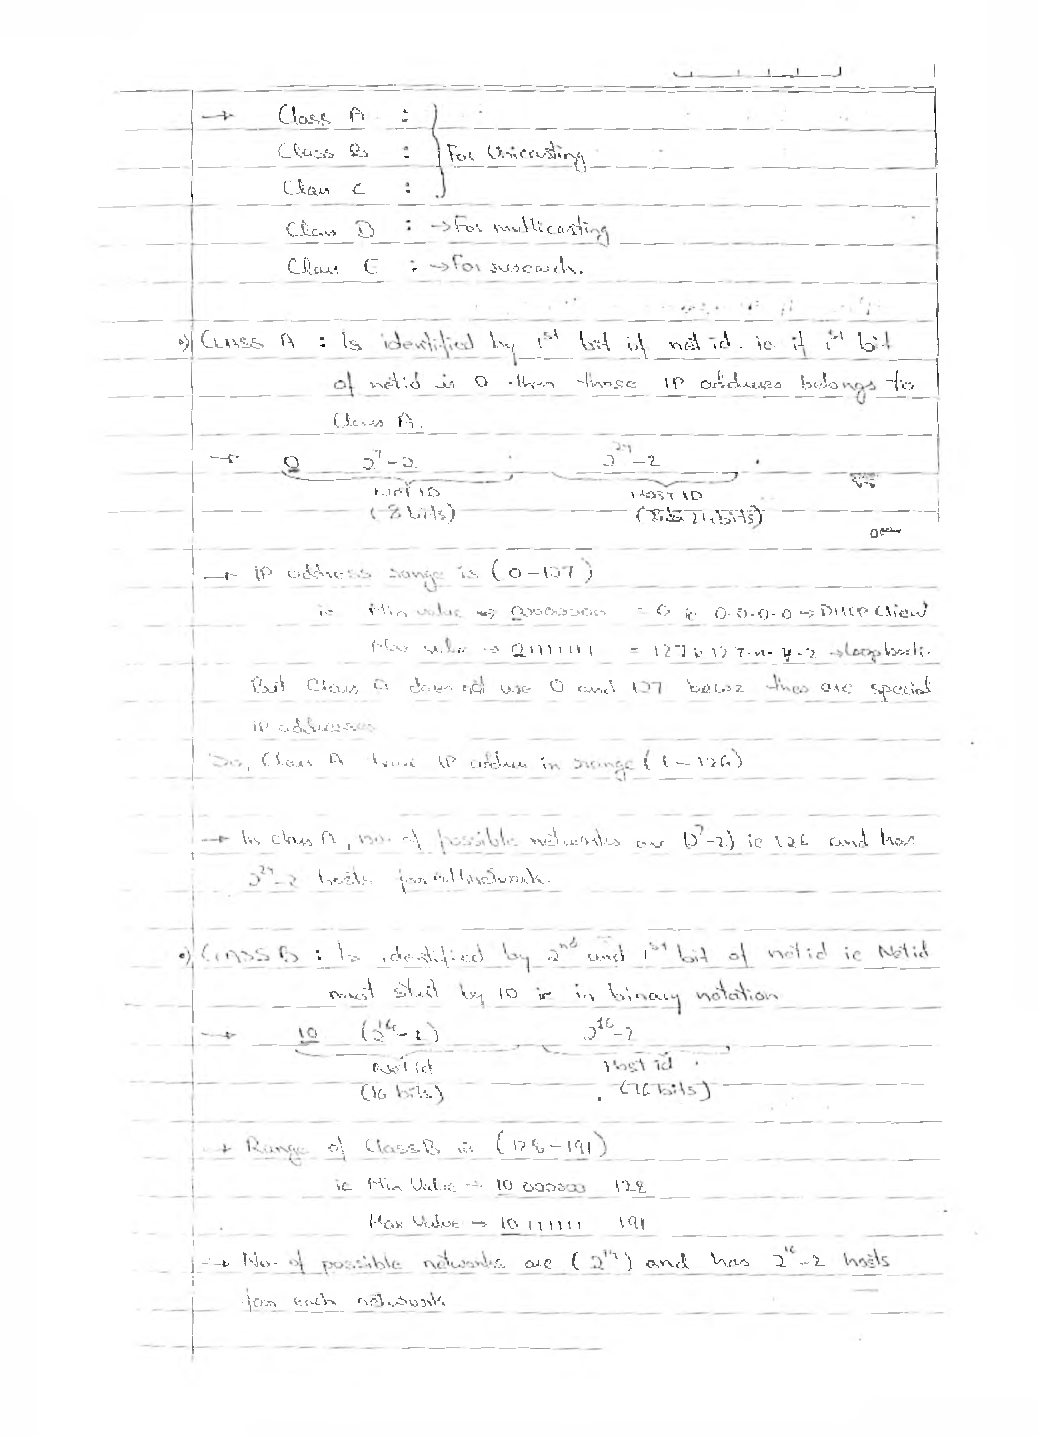 → Class A :
Class B : For Unicasting
Class C :
Class D : → For multicasting
Class E : → For research.
CLASS A : Is identified by 1st bit of net id. ie if 1st bit
of netid is 0 then those IP address belongs to
Class A.
→ 0 2^7-2 2^24-2
NET ID HOST ID
(8 bits) (24 bits)
→ IP address range is (0-127)
ie Min value → 00000000 = 0 0.0.0.0 → DHCP Client
Max value → 01111111 = 127 → loopback.
But Class A does not use 0 and 127 these are special
IP addresses
So, Class A have IP address in range (1-126)
→ In class A, no. of possible networks are (2^7-2) ie 126 and has
2^24-2 hosts for network.
CLASS B : Is identified by 2nd and 1st bit of netid ie Netid
must start by 10 in binary notation
→ 10 2^16-2
Net id Host id
(16 bits) (16 bits)
→ Range of Class B is (128-191)
ie Min Value → 10 000000 128
Max Value → 10 111111 191
→ No. of possible networks are (2^14) and has 2^16-2 hosts
for each network